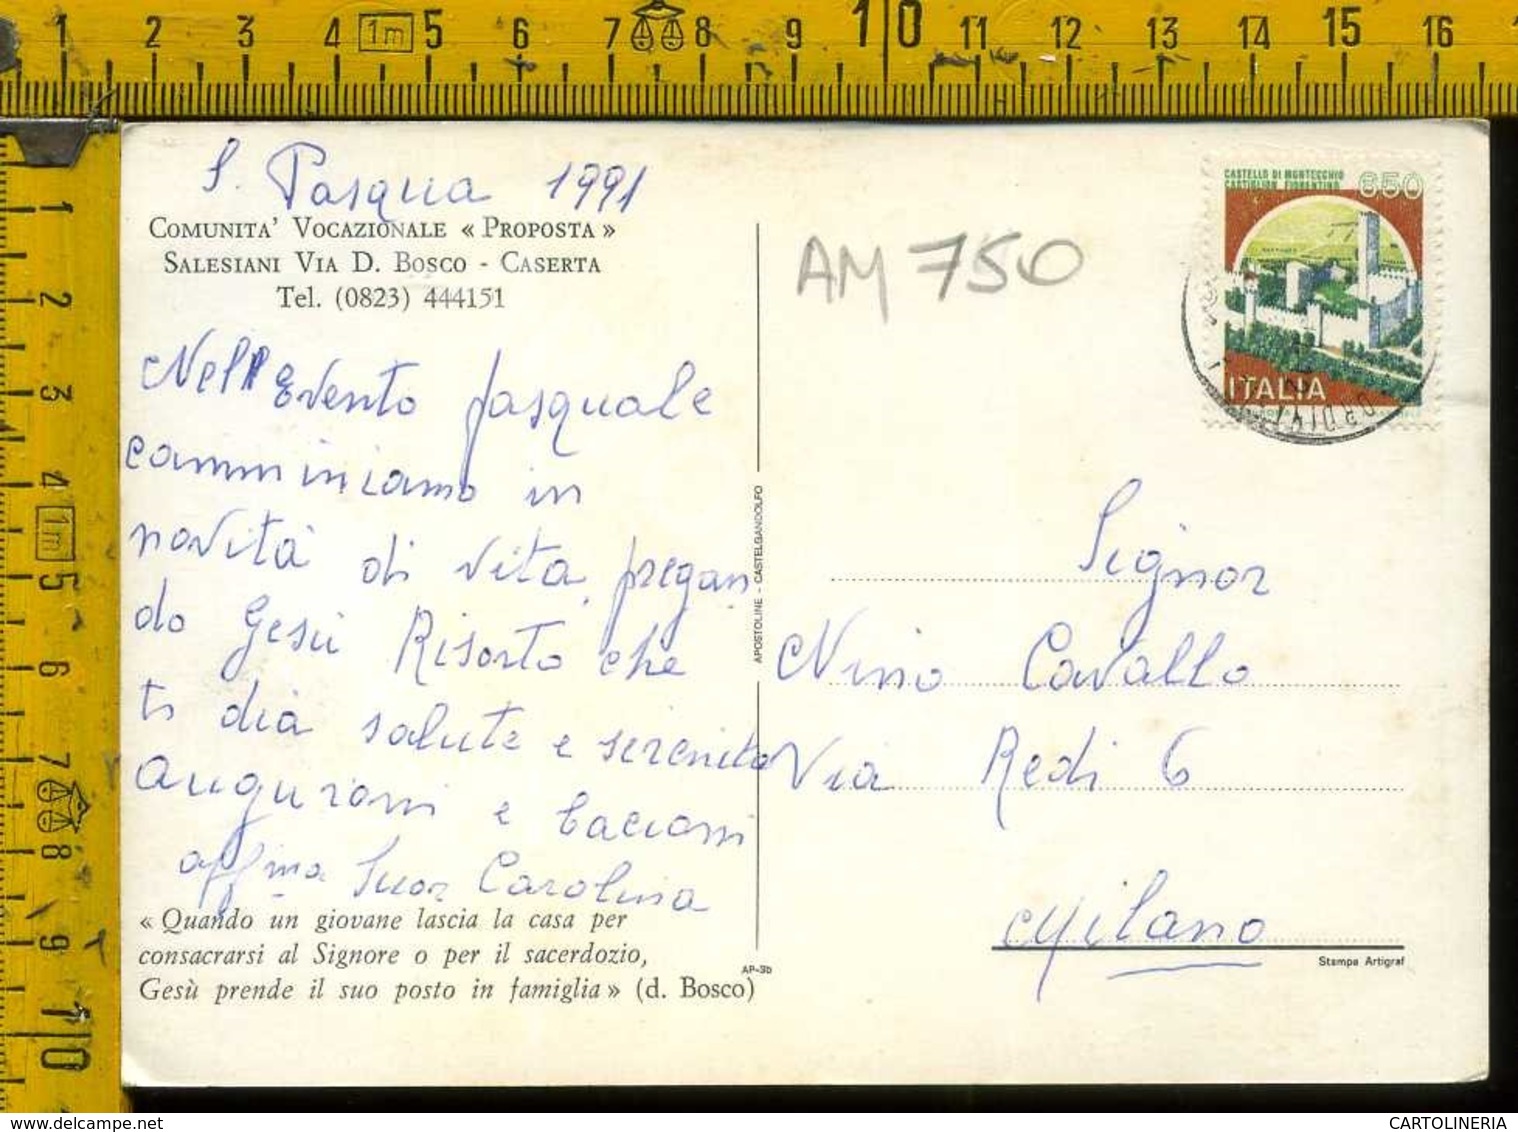 1 2 3 4 1m 5 6 7 8 9 10 11 12 13 14 15 16
1 2 3 4 1m 5 6 7 8 9 10
S. Pasqua 1991
COMUNITA' VOCAZIONALE « PROPOSTA »
SALESIANI VIA D. BOSCO - CASERTA
Tel. (0823) 444151
Nell'Evento pasquale
camminiamo in
novità di vita, pregan
do Gesù Risorto che
ti dia salute e serenità
Auguroni e bacioni
aff.ma Suor Carolina
« Quando un giovane lascia la casa per
consacrarsi al Signore o per il sacerdozio,
Gesù prende il suo posto in famiglia » (d. Bosco)
AP-3b
APOSTOLINE - CASTELGANDOLFO
AM 750
CASTELLO DI MONTECCHIO
CASTIGLION FIORENTINO
650
ITALIA
Signor
Nino Cavallo
Via Redi 6
Milano
Stampa Artigraf
www.delcampe.net
CARTOLINERIA